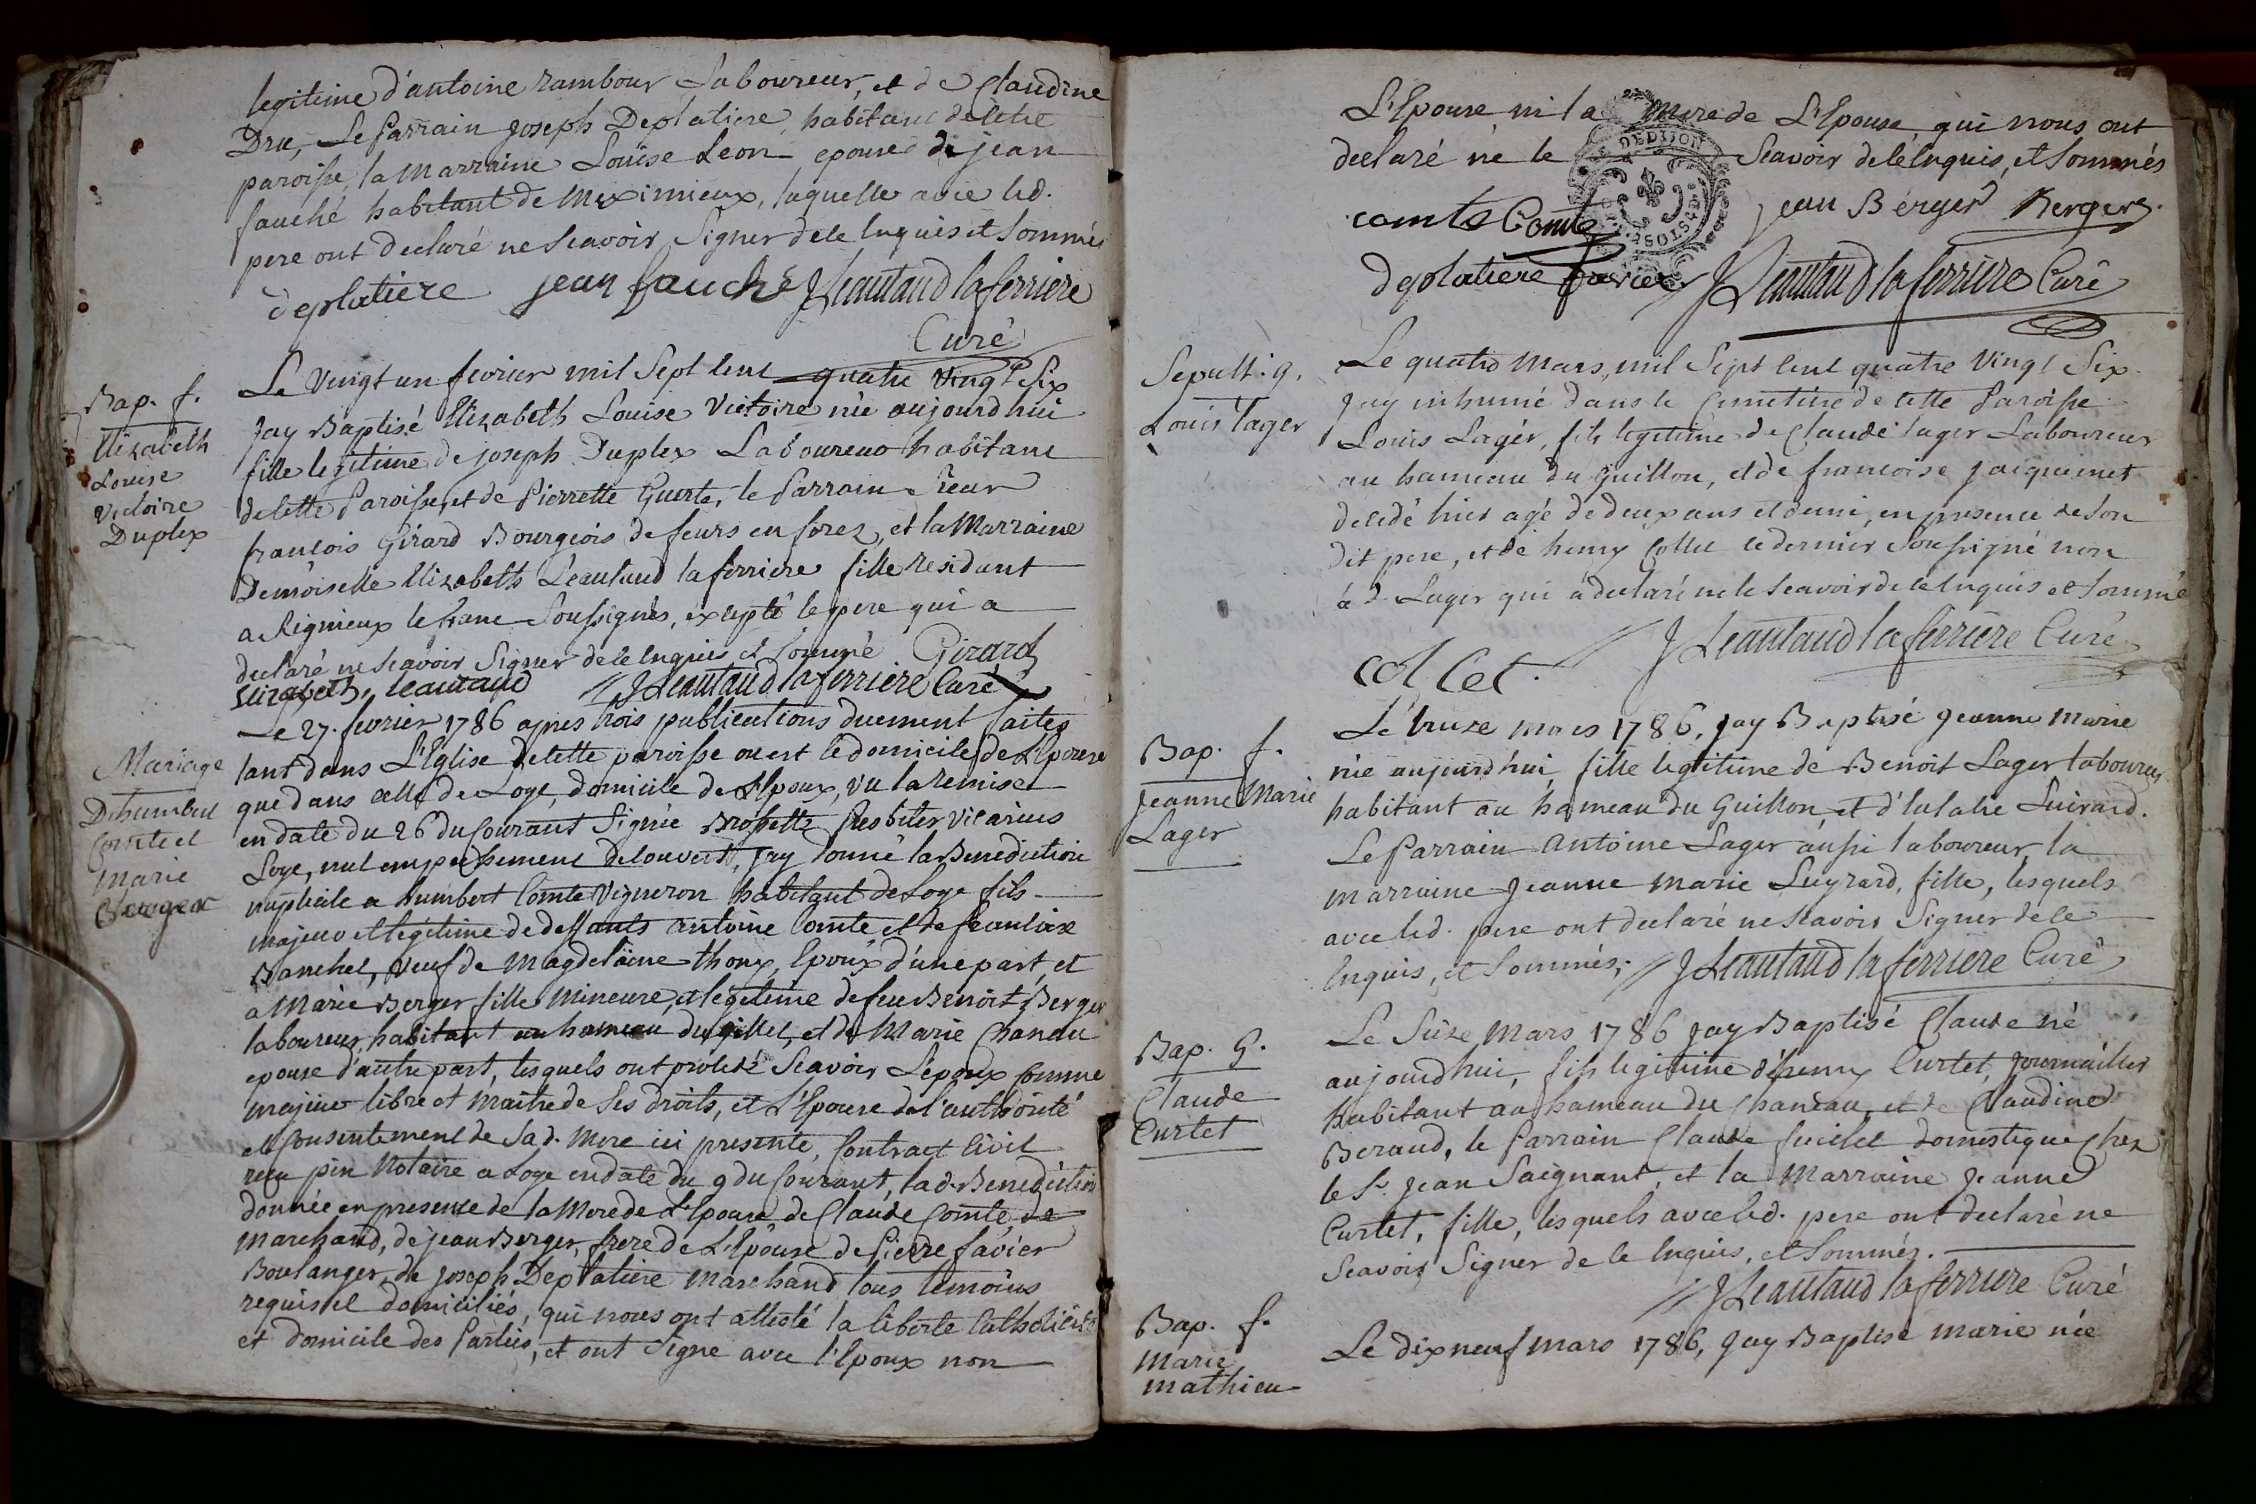 legitime d'antoine rambour Laboureur, et de Claudine
Dru, Le Parrain joseph Deplatiere, habitant de cette
paroisse, la Marraine Louïse Leon epouse de jean
fauché habitant de Meximieux, laquelle avec led.
pere ont declaré ne Scavoir Signer de ce Enquis et Sommés
deplatiere jean fauché JLeautaud laferriere
Curé
Bap. f.
Elizabeth
Louise
Victoire
Duplex
Le Vingt un fevrier mil Sept Cent quatre Vingt Six
Jay Baptisé Elizabeth Louise Victoire née aujourd'hui
fille legitime de joseph Duplex Laboureur habitant
de cette Paroisse, et de Pierrette Guerte, le Parrain Sieur
francois Girard Bourgeois de feurs en forez, et la Marraine
Demoiselle Elizabeth Léautaud laferriere fille residant
a Rignieux le franc Soussignés, excepté le pere qui a
declaré ne Scavoir Signer de ce Enquis et Sommé Girard
Leautaud JLeautaud laferriere Curé
Mariage
D'humbert
Comte et
Marie
Berger
Le 27. fevrier 1786 apres trois publications duement faites
tant dans L'Eglise de cette paroisse ou est le domicile de L'Epouse
que dans celle de Loye, domicile de L'Epoux, Vu la remise
en date du 26 du Courant Signée Presbiter Vicarius
Loye, nul empechement decouvert, Jay donné la Benediction
nuptiale a humbert Comte Vigneron habitant de Loye fils
majeur et légitime de deffunts antoine Comte et de francoise
Banchet, Veuf de Magdelaine thoux, Epoux d'une part, et
a Marie Berger fille Mineure, et legitime de feu Benoit Berger
laboureur habitant au hameau du gillet, et de Marie Chanau
epouse d'autre part, lesquels ont procedé Scavoir L'epoux Comme
majeur libre et maitre de Ses droits, et L'Epouse de l'authorité
et Consentement de Sa d. Mere ici presente, Contract Civil
recu pin Notaire a Loye en date du 9 du Courant, la d. Benediction
donnée en presence de la Mere de L'Epouse de Claude Comte
Marchand, de jean Berger, frere de L'Epouse de Pierre favier
Boulanger, de joseph Deplatiere Marchand tous temoins
requis et domiciliés, qui nous ont attesté la liberté Catholicité
et domicile des Parties, et ont Signé avec l'Epoux non
L'Epouse ni la Mere de L'Epouse qui nous ont
declaré ne le Scavoir de ce Enquis, et Sommés
comte Comte jean Berger Berger
deplatiere favier JLeautaud laferriere Curé
Sepult. g.
Louis Lager
Le quatre Mars, mil Sept Cent quatre Vingt Six
Jay inhumé dans le Cimetiere de cette Paroisse
Louis Lager, fils legitime de Claude Lager Laboureur
au hameau du Guillon, et de francoise Jacquemet
decedé hier agé de deux ans et demi, en presence de Son
dit pere, et de henry Collet ce dernier Soussigné non
le d. Lager qui à declaré ne le Scavoir de ce Enquis et Sommé
collet. JLeautaud laferriere Curé
Bap. f.
Jeanne Marie
Lager
Le treize mars 1786, Jay Baptisé Jeanne Marie
née aujourd'hui, fille legitime de Benoit Lager laboureur
habitant au hameau du Guillon, et d'Eulalie Luirard.
Le Parrain antoine Lager aussi laboureur, la
marraine Jeanne Marie Luyrard, fille, lesquels
avec led. pere ont declaré ne Scavoir Signer de ce
Enquis, et Sommés; JLeautaud laferriere Curé
Bap. G.
Claude
Curtet
Le Seize Mars 1786 Jay Baptisé Claude né
aujourd'hui, fils legitime d'henry Curtet, Journaillier
habitant au hameau du Chaneau, et de Claudine
Beraud, le Parrain Claude domestique Chez
le Sr. Jean Saignant, et la Marraine Jeanne
Curtet, fille, lesquels avec led. pere ont declaré ne
Scavoir Signer de ce Enquis, et Sommés.
JLeautaud laferriere Curé
Bap. f.
Marie
Mathieu
Le dix neuf mars 1786, Jay Baptisé Marie née